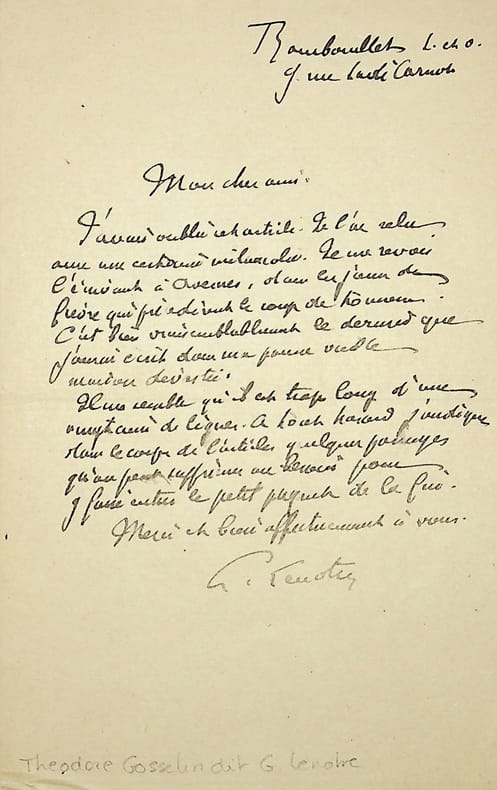 Rambouillet S. et O.
9 rue Sadi Carnot
Mon cher ami.
J'avais oublié cet article. Je l'ai relu
avec une certaine mélancolie. Je me revois
l'écrivant à Avesnes, dans les jours de
fièvre qui précédèrent le coup de tonnerre.
C'est bien vraisemblablement le dernier que
j'aurai écrit dans ma pauvre vieille
maison dévastée.
Il me semble qu'il est trop long d'une
vingtaine de lignes. A tout hasard j'indique
dans le corps de l'article quelques passages
qu'on peut supprimer au besoin pour
y faire entrer le petit paquet de la fin.
Merci et bien affectueusement à vous.
G. Lenotre
Théodore Gosselin dit G. Lenotre